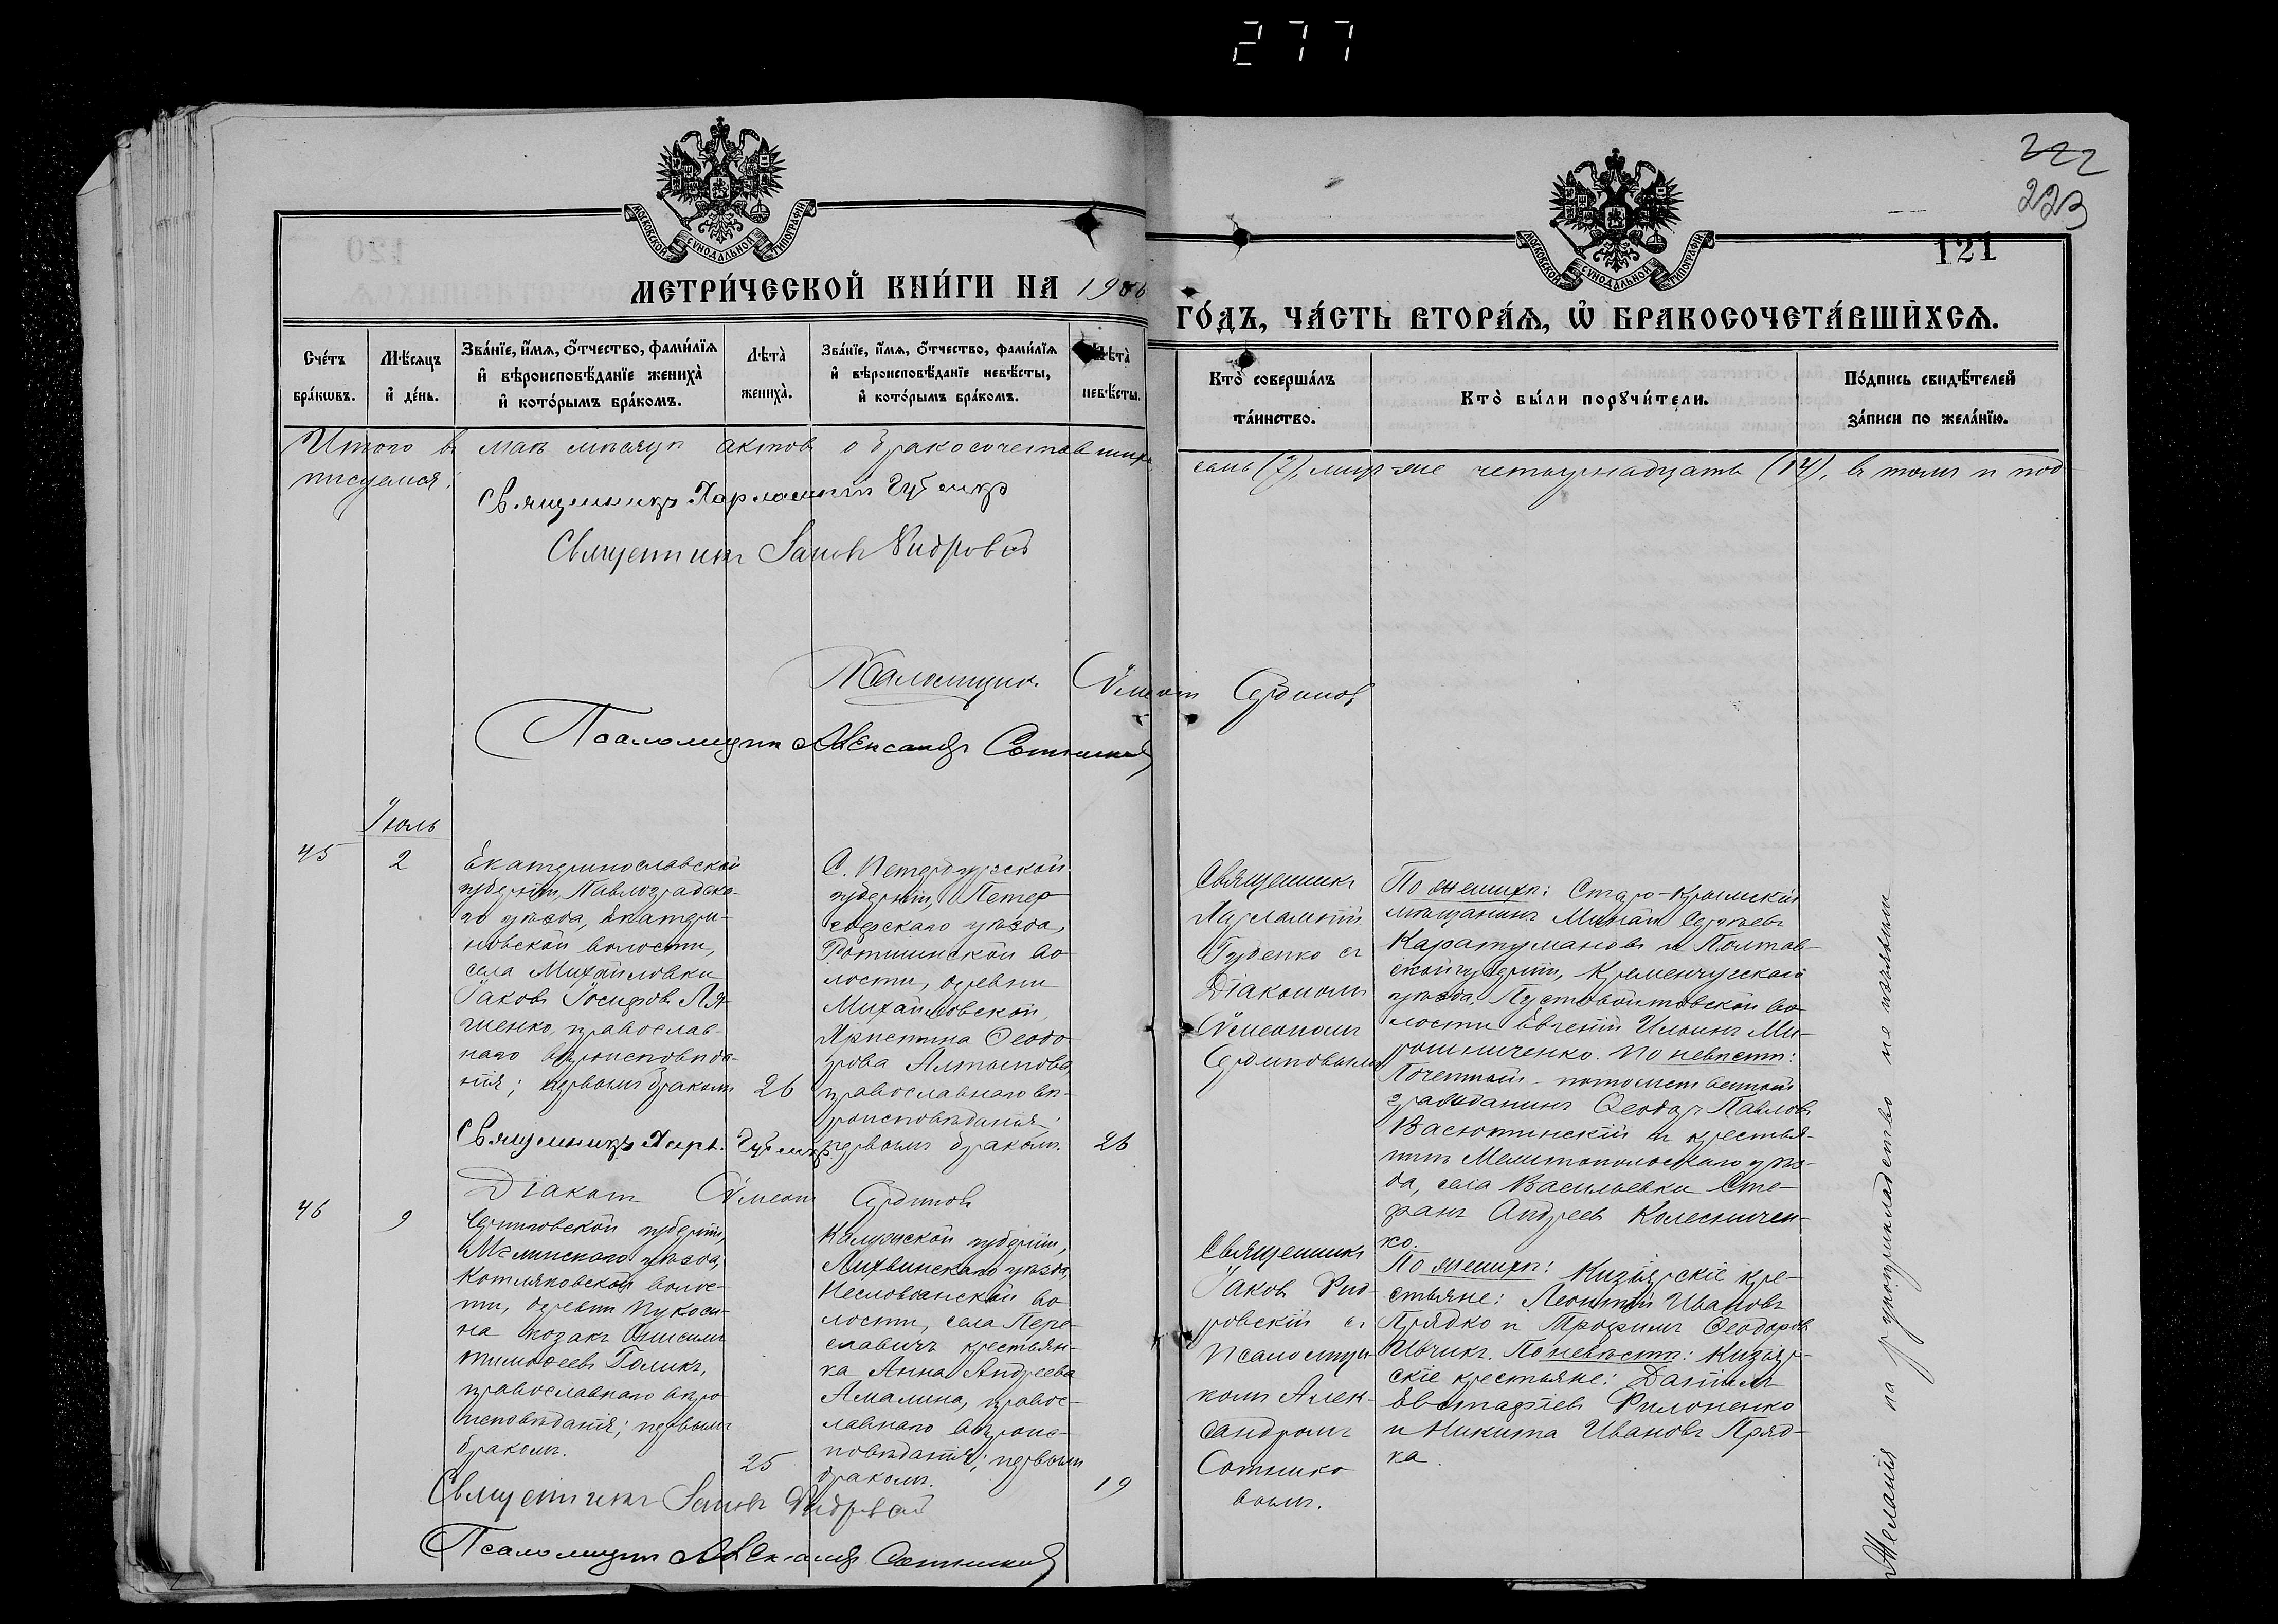 277
222
223
121
МОСКОВСКОЙ СѴНОДАЛЬНОЙ ТИПОГРАФІИ
МОСКОВСКОЙ СѴНОДАЛЬНОЙ ТИПОГРАФІИ
МЕТРИ́ЧЕСКОЙ КНИ́ГИ НА 1906
ГО́ДЪ, ЧА́СТЬ ВТОРА́Ѧ, Ѽ БРАКОСОЧЕТА́ВШИХСѦ.
Сче́тъ
бра́кѡвъ.
Мѣ́сяцъ
и҆ де́нь.
Зва́нїе, и҆́мѧ, ѻ҆́тчество, фами́лїѧ
и҆ вѣроисповѣ́данїе жениха̀
и҆ кото́рымъ бра́комъ.
Лѣ́та̀
жениха̀.
Зва́нїе, и҆́мѧ, ѻ҆́тчество, фами́лїѧ
и҆ вѣроисповѣ́данїе невѣ́сты,
и҆ кото́рымъ бра́комъ.
Лѣ́та̀
невѣ́сты.
Кто̀ соверша́лъ
та́инство.
Кто̀ бы́ли порꙋчи́тели.
По́дпись свидѣ́телей
за́писи по жела́нїю.
Итого въ маѣ мѣсяцѣ актовъ о бракосочетавшихся
семь (7), муж. же четырнадцать (14), въ томъ и под-
писуемся:
Священникъ Харлампій Гуденко
Священникъ Іаковъ Ридровскій
Псаломщикъ Симеонъ
Псаломщикъ Александръ Сотниковъ
Іюль
45
2
Екатеринославской
губерніи, Павлоградска-
го уѣзда, Екатери-
новской волости,
села Михайловки
Іаковъ Іосифовъ Ля-
шенко, православ-
наго вѣроисповѣда-
нія; первымъ бракомъ
26
С. Петербургской
губерніи, Петер-
гофскаго уѣзда,
Ропшинской во-
лости, деревни
Михайловской,
Ѳеодо-
рова
православнаго вѣ-
роисповѣданія;
первымъ бракомъ.
26
Священникъ Харл. Гуденко
Діаконъ Симеонъ
Священникъ
Харлампій
Гуденко съ
Діакономъ
Симеономъ
По женихѣ: Старо-Крымскій
мѣщанинъ Минай Сергѣевъ
Каратумановъ и Полтав-
ской губерніи, Кременчугскаго
уѣзда, Пустовойтовской во-
лости Евгеній Ильинъ Ми-
рошниченко. По невѣстѣ:
Почетный потомственный
гражданинъ Ѳеодоръ Павловъ
Васютинскій и крестья-
нинъ Мелитопольскаго уѣз-
да, села Васильевки Сте-
фанъ Андреевъ Колесничен-
ко.
46
9
Черниговской губерніи,
Мглинскаго уѣзда,
Котляковской волос-
ти, деревни
на козакъ Онисимъ
Тимоѳеевъ Голикъ,
православнаго вѣро-
исповѣданія; первымъ
бракомъ.
25
Калужской губерніи,
Лихвинскаго уѣзда,
во-
лости, села Пере-
славичъ крестьян-
ка Анна Андреева
Амалина, правос-
лавнаго вѣроис-
повѣданія; первымъ
бракомъ.
19
Священникъ
Іаковъ Рид-
ровскій съ
псаломщи-
комъ Алек-
сандромъ
Сотнико-
вымъ.
По женихѣ: Кизіярскіе кре-
стьяне: Леонтій Ивановъ
Прядко и Трофимъ Ѳеодоровъ
Ивчикъ. По невѣстѣ: Кизіяр-
скіе крестьяне: Даніилъ
Евстафіевъ Филоненко
и Никита Ивановъ Пряд-
ка.
Священникъ Іаковъ Ридровскій
Псаломщикъ Александръ Сотниковъ
Желанія на рукоприкладство не изъявили